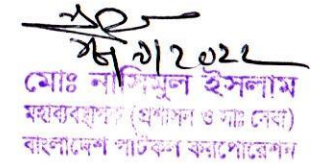 ২০২২
মোঃ নাসিমুল ইসলাম
মহাব্যবস্থাপক (প্রশাসন ও সাঃ সেবা)
বাংলাদেশ পাটকল কর্পোরেশন